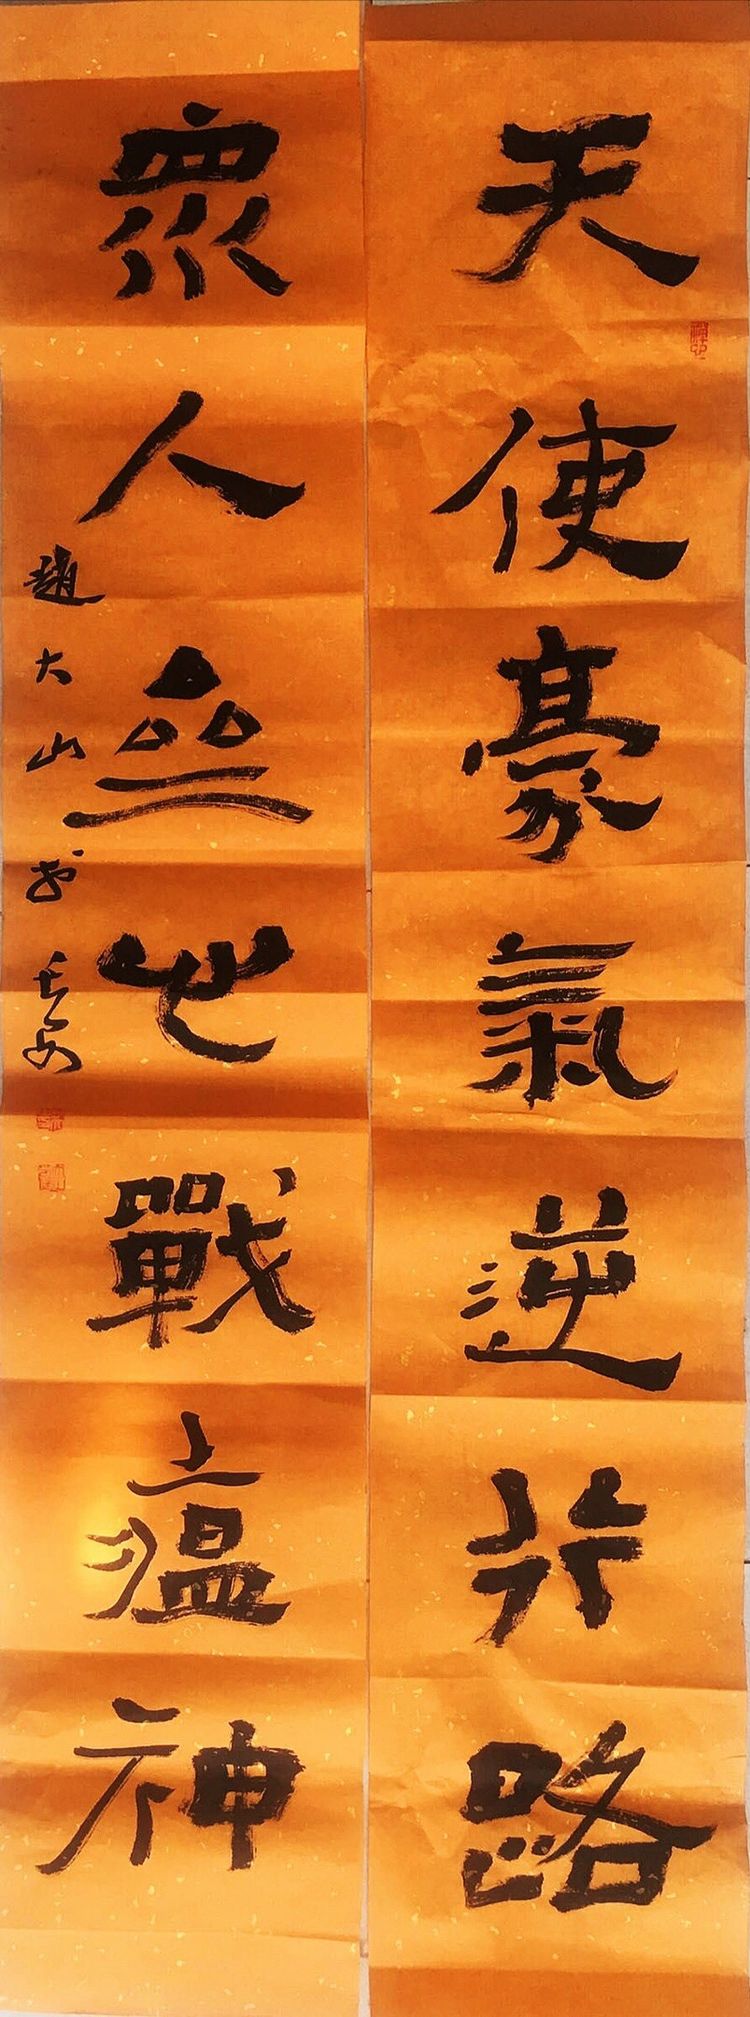 天使豪氣逆行路
眾人齊心戰瘟神
趙大山书长安